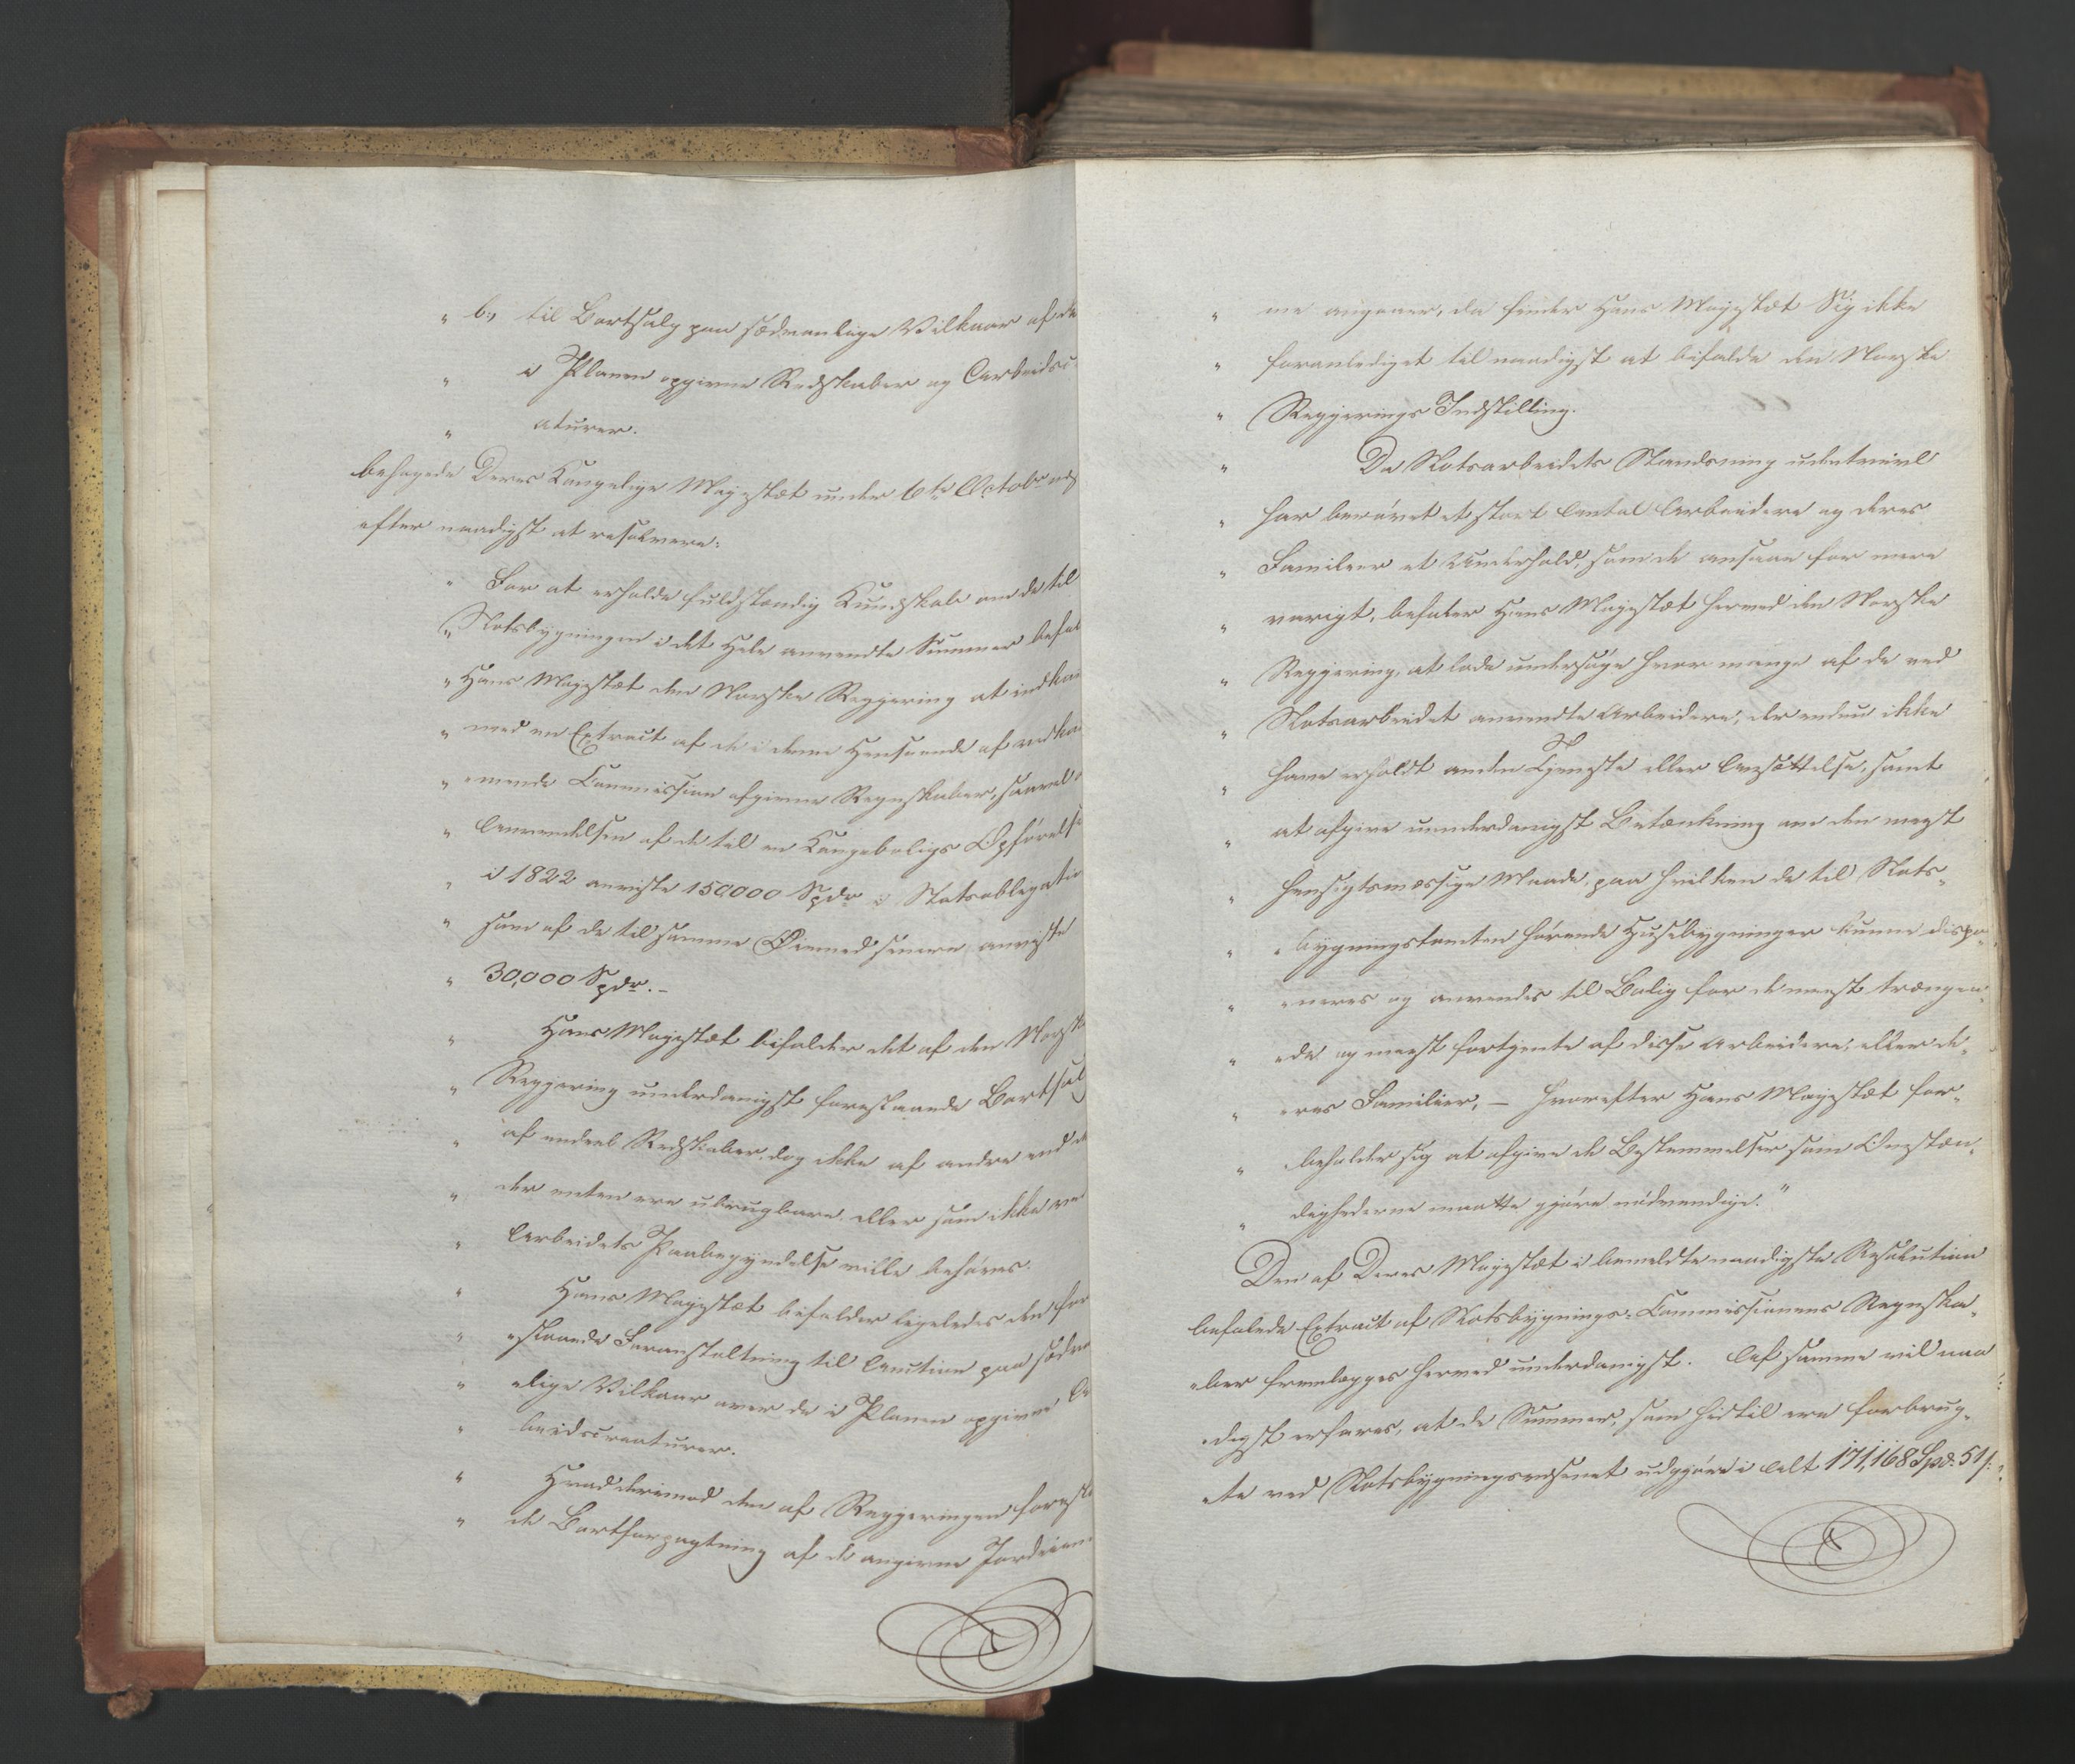 " b:, til Bortsalg paa sædvanlige Vilkaar af de
" i Planen opgivne Redskaber og Arbeidscre
" aturer.
behagede Deres Kongelige Majestæt under 6te Octobr
efter naadigst at resolvere:
" For at erholde fuldstændig Kundskab om de til
" Slotsbygningen i det Hele anvendte Summer befal
" Hans Majestæt den Norske Regjering at indkom
" med en Extract af de i denne Henseende af vedkom
" mende Commission afgivne Regnskaber, saavel
" Anvendelsen af de til en Kongeboligs Opførelse
" i 1822 anviste 150000 Spdr i Statsobligatio
" som af de til samme Øiemed senere anviste
" 30,000 Spdr. –
" Hans Majestæt bifalder det af den Norske
" Regjering underdanigst foreslaaede Bortsalg
" af endeel Redskaber, dog ikke af andre end de
" der enten ere ubrugbare eller som ikke ved
" Arbeidets Paabegyndelse ville behøves.
" Hans Majestæt bifalder ligeledes den fore
" slaaede Foranstaltning til Auction paa sædvan
" lige Vilkaar over de i Planen opgivne Ar
" beidscreaturer.
" Hvad derimod den af Regjeringen foreslaae
" de Bortforpagtning af de angivne Jordeien
" me angaaer, da finder Hans Majestæt Sig ikke
" foranlediget til naadigst at bifalde den Norske
" Regjerings Indstilling.
" Da Slotsarbeidets Standsning udentvivl
" har berøvet et stort Antal Arbeidere og deres
" Familier et Underhold, som de ansaae for mere
" varigt, befaler Hans Majestæt herved den Norske
" Regjering, at lade undersøge hvor mange af de ved
" Slotsarbeidet anvendte Arbeidere, der endnu ikke
" have erholdt anden Tjeneste eller Ansættelse, samt
" at afgive underdanigst Betænkning om den meest
" hensigtsmæssige Maade, paa hvilken de til Slots-
" bygningstomten hørende Huusbygninger kunne dispo-
" neres og anvendes til Bolig for de meest trængen-
" de og meest fortjente af disse Arbeidere, eller de-
" res Familier, – hvorefter Hans Majestæt for-
" beholder sig at afgive de Bestemmelser som Omstæn-
" dighederne maatte gjøre nødvendige."
Den af Deres Majestæt i bemeldte naadigste Resolution
befalede Extract af Slotsbygnings-Commissionens Regnska-
ber fremlægges herved underdanigst. Af samme vil naa
digst erfares, at de Summer, som hidtil ere forbrug-
te ved Slotsbygningsvæsenet udgjøre i Alt 171,168 Spd. 51 s: